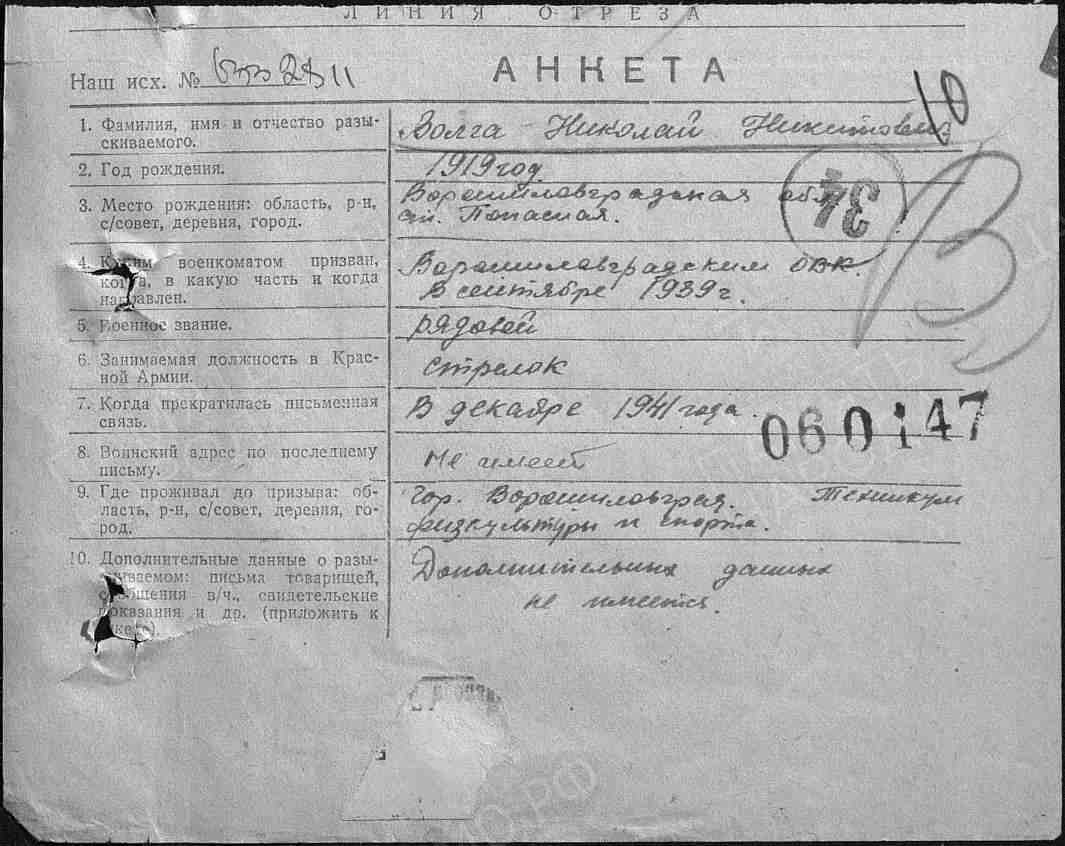 ЛИНИЯ ОТРЕЗА
Наш исх. №
АНКЕТА
10
1. Фамилия, имя и отчество разы-
скиваемого.
Волга Николай Никитович
2. Год рождения.
1919 год
3. Место рождения: область, р-н,
с/совет, деревня, город.
Ворошиловградская обл.
ст. Попасная.
34
В
4. Каким военкоматом призван,
когда, в какую часть и когда
направлен.
Ворошиловградским ОВК.
В сентябре 1939 г.
5. Военное звание.
рядовой
6. Занимаемая должность в Крас-
ной Армии.
стрелок
7. Когда прекратилась письменная
связь.
В декабре 1941 года.
060147
8. Воинский адрес по последнему
письму.
Не имеет
9. Где проживал до призыва: об-
ласть, р-н, с/совет, деревня, го-
род.
Гор. Ворошиловград. Техникум
физкультуры и спорта.
10. Дополнительные данные о разы-
скиваемом: письма товарищей,
сообщения в/ч., свидетельские
показания и др. (приложить к
анкете)
Дополнительных данных
не имеется.